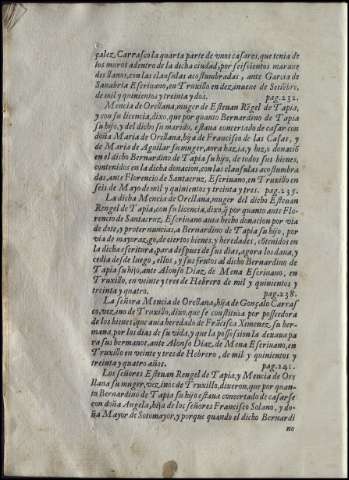 çalez, Carrasco la quarta parte de vnos casares, que tenia de
los muros adentro de la dicha ciudad, por seiscientos maraue
dis llanos, con las clausulas acostumbradas, ante Garcia de
Sanabria Escriuano, en Truxillo en dezinueue de Setiẽbre,
de mil y quinientos y treinta y dos. pag. 232.
Mencia de Orellana, muger de Esteuan Rẽgel de Tapia,
y con su licencia, dixo, que por quanto Bernardino de Tapia,
su hijo, y del dicho su marido, estaua concertado de casar con
doña Maria de Orellana, hija de Francisco de las Casas, y
de Maria de Aguilar su muger, aora hazia, y hizo donaciõ
en el dicho Bernardino de Tapia su hijo, de todos sus bienes,
contenidos en la dicha donacion, con las clausulas acostumbra
das, ante Florencio de Santacruz, Escriuano, en Truxillo en
seis de Mayo de mil y quinientos y treinta y tres. pag. 235.
La dicha Mencia de Orellana, muger del dicho Esteuan
Rengel de Tapia, con su licencia, dixo, q̃ por quanto ante Flo-
rencio de Santacruz, Escriuano auia hecho donacion por via
de dote, y proter nuncias, a Bernardino de Tapia su hijo, por
via de mayorazgo, de ciertos bienes, y heredades, cõtenidos en
la dicha escritura, para despues de sus dias, agora los daua, y
cedia desde luego, ellos, y sus frutos al dicho Bernardino de
Tapia su hijo, ante Alonso Diaz de Mena Escriuano, en
Truxillo, en veinte y tres de Hebrero de mil y quinientos y
treinta y quatro. pag. 238.
La señora Mencia de Orellana, hija de Gonçalo Carras
co, vezino de Truxillo, dixo, que se constituia por posseedora
de los bienes, que auia heredado de Francisca Ximenez, su her-
mana, por los dias de su vida, y que la possession la dexaua pa
ra sus hermanos, ante Alonso Diaz, de Mena Escriuano, en
Truxillo en veinte y tres de Hebrero, de mil y quinientos y
treinta y quatro años. pag. 241.
Los señores Esteuan Rengel de Tapia, y Mencia de Ore
llana su muger, vezinos de Truxillo, dixeron, que por quan-
to Bernardino de Tapia su hijo estaua concertado de casarse
con doña Angela, hija de los señores Francisco Solano, y do-
ña Mayor de Sotomayor, y porque quando el dicho Bernardi
no